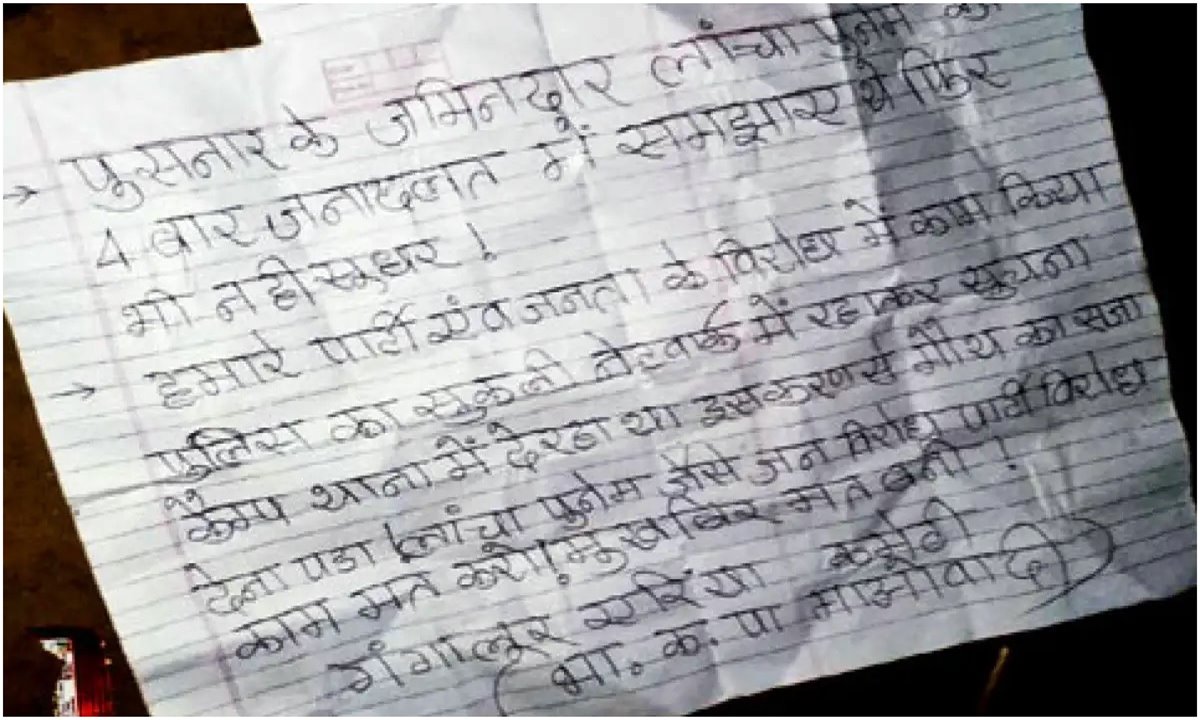 → पुसनार के जमिनदार लांचा पुनेम को
4 बार जनादलत में समझाए थे फिर
भी नही सुधर !
→ हमारे पार्टी एंव जनता के विरोध में काम किया
पुलिस का नेटवर्क में रहकर सुचना
कैम्प थाना में दे रहा था इसकरण से मौथ का सजा
देना पडा। लांचा पुनेम जैसे जन विरोध पार्टी विरोध
काम मत करो! मुखबिर मत बनो !
गंगालूर एरिया कमेटी
(भा. क. पा माओवादी)